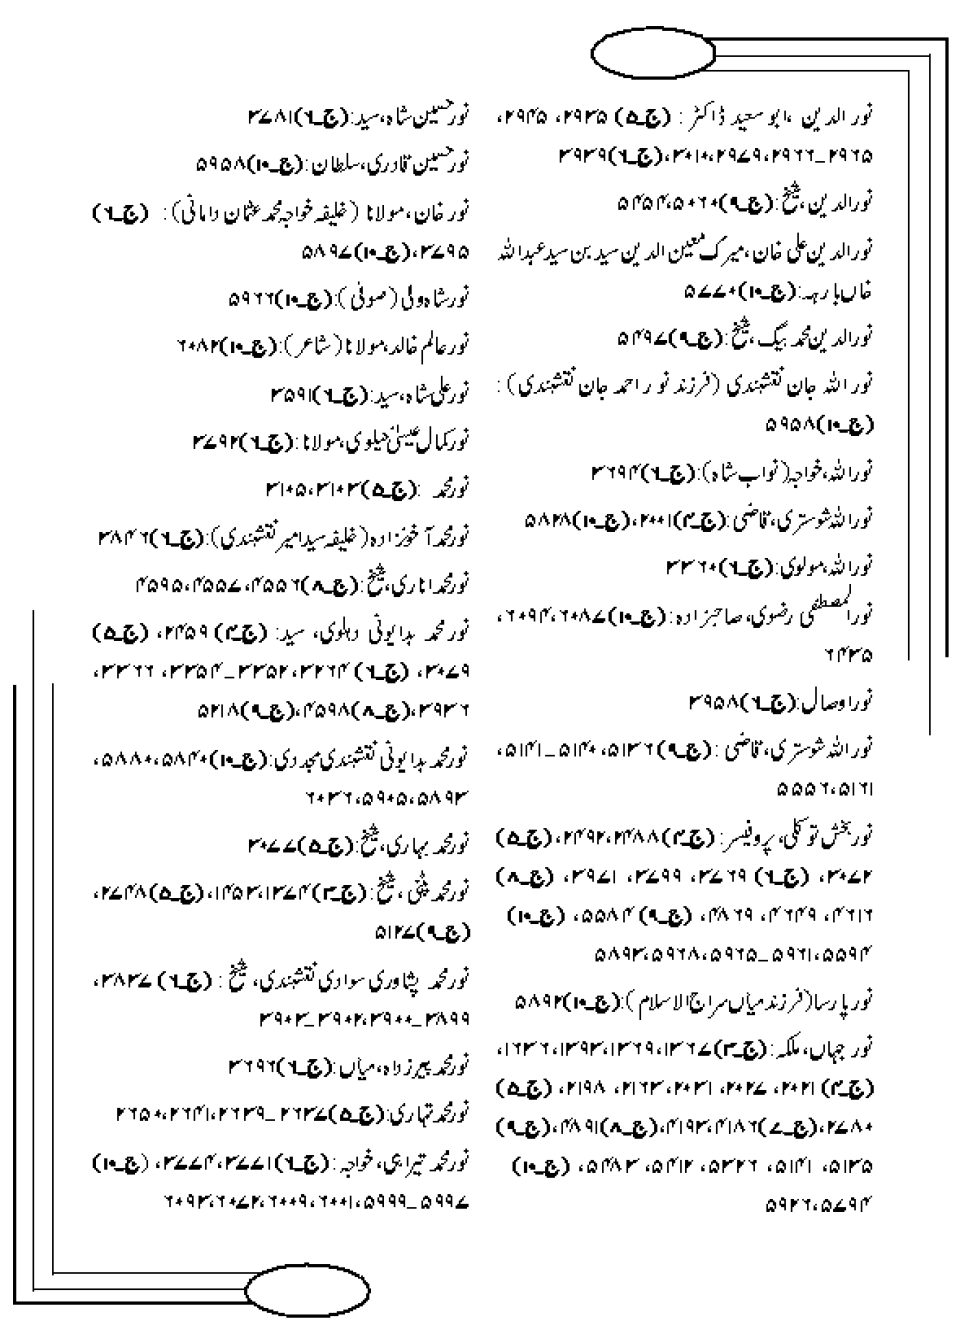 نور الدین ،ابو سعید ڈاکٹر : (ج۔۵) ۲۹۳۵، ۲۹۴۵،
۲۹۶۵۔۲۹۶۶، ۲۹۷۹، ۳۰۱۰، (ج۔۶)۳۹۳۹
نورالدین،شیخ:(ج۔۹)۵۰۶۰، ۵۴۵۴
نورالدین علی خان،میرک معین الدین سید بن سید عبداللہ
خاں بارہہ:(ج۔۱۰)۵۷۷۰
نورالدین محمد بیگ،شیخ:(ج۔۹)۵۴۹۷
نور اللہ جان نقشبندی (فرزند نور احمد جان نقشبندی) :
(ج۔۱۰)۵۹۵۸
نوراللہ،خواجہ(نواب شاہ):(ج۔۶)۳۶۹۴
نوراللہ شوستری،قاضی:(ج۔۴)۲۰۰۱، (ج۔۱۰)۵۸۲۸
نوراللہ،مولوی:(ج۔۶)۳۳۶۰
نورالمصطفٰی رضوی،صاحبزادہ:(ج۔۱۰)۶۰۸۷، ۶۰۹۴،
۶۴۳۵
نوراوصال:(ج۔۶)۳۹۵۸
نوراللہ شوستری،قاضی :(ج۔۹)۵۱۳۶، ۵۱۴۰۔۵۱۴۱،
۵۱۶۱، ۵۵۵۶
نور بخش توکلی،پروفیسر:(ج۔۴)۲۴۸۸، ۲۴۹۲، (ج۔۵)
۳۰۷۲، (ج۔۶) ۳۷۶۹، ۳۷۹۹، ۳۹۷۱، (ج۔۸)
۴۶۱۶، ۴۶۴۹، ۴۸۶۹، (ج۔۹)۵۵۸۴، (ج۔۱۰)
۵۵۹۴، ۵۹۶۱۔۵۹۶۵، ۵۹۶۸، ۵۸۹۳
نورپارسا(فرزند میاں سراج الاسلام):(ج۔۱۰)۵۸۹۲
نور جہاں،ملکہ:(ج۔۳)۱۳۶۷، ۱۳۶۹، ۱۳۹۳، ۱۶۳۶،
(ج۔۴)۲۰۲۱، ۲۰۲۷، ۲۰۳۱، ۲۱۶۳، ۲۱۹۸، (ج۔۵)
۲۷۸۰، (ج۔۷)۴۱۸۶، ۴۱۹۳، (ج۔۸)۴۸۹۱، (ج۔۹)
۵۱۳۵، ۵۱۴۱، ۵۳۲۶، ۵۴۱۲، ۵۴۸۳، (ج۔۱۰)
۵۷۹۴، ۵۹۲۶
نور حسین شاہ،سید:(ج۔۶)۳۷۸۱
نور حسین قادری،سلطان:(ج۔۱۰)۵۹۵۸
نور خان،مولانا (خلیفہ خواجہ محمد عثمان دامانی): (ج۔۶)
۳۷۹۵، (ج۔۱۰)۵۸۹۷
نورشاہ ولی(صوفی):(ج۔۱۰)۵۹۶۶
نورعالم خالد،مولانا(شاعر):(ج۔۱۰)۶۰۸۲
نورعلی شاہ،سید:(ج۔۶)۳۵۹۱
نورکمال عیسیٰ خیلوی،مولانا:(ج۔۶)۳۷۹۲
نورمحمد :(ج۔۵)۳۱۰۳، ۳۱۰۵
نورمحمد آخوندزادہ(خلیفہ سید امیر نقشبندی):(ج۔۶)۳۸۴۶
نورمحمد اناری،شیخ:(ج۔۸)۴۵۵۶، ۴۵۵۷، ۴۵۹۵
نورمحمد بدایونی دہلوی، سید: (ج۔۴) ۲۴۵۹، (ج۔۵)
۳۰۷۹، (ج۔۶) ۳۲۶۴، ۳۳۵۲۔۳۳۵۴، ۳۳۶۶،
۳۹۳۶، (ج۔۸)۴۵۹۸، (ج۔۹)۵۲۱۸
نورمحمد بدایونی نقشبندی مجددی:(ج۔۱۰)۵۸۴۰، ۵۸۸۰،
۵۸۹۳، ۵۹۰۵، ۶۰۳۶
نورمحمد بہاری،شیخ:(ج۔۵)۳۰۷۷
نورمحمد پٹنی ،شیخ:(ج۔۳)۱۳۷۴، ۱۴۵۳، (ج۔۵)۲۷۴۸،
(ج۔۹)۵۱۲۷
نورمحمد پشاوری سواوی نقشبندی، شیخ : (ج۔۶) ۳۸۳۷،
۳۸۹۹۔۳۹۰۰، ۳۹۰۲۔۳۹۰۳
نورمحمد پیرزادہ،میاں:(ج۔۶)۳۶۹۶
نورمحمد تہاری:(ج۔۵)۲۶۳۷۔۲۶۳۹، ۲۶۴۱، ۲۶۵۰
نورمحمد تیراہی، خواجہ:(ج۔۶)۳۷۷۱، ۳۷۷۴، (ج۔۱۰)
۵۹۹۷۔۵۹۹۹، ۶۰۰۱، ۶۰۰۹، ۶۰۷۲، ۶۰۹۳